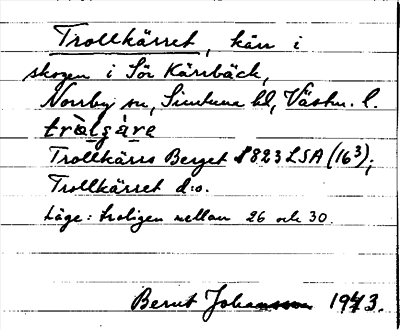 Trollkärret, kärr i
skogen i Sör Kärrbäck,
Norrby sn, Simtuna hd, Västm. l.
trȍlçäre
Trollkärrs Berget 1823 LSA (16³);
Trollkärret d:o.
Läge: troligen mellan 26 och 30.
Bernt Johansson 1943.